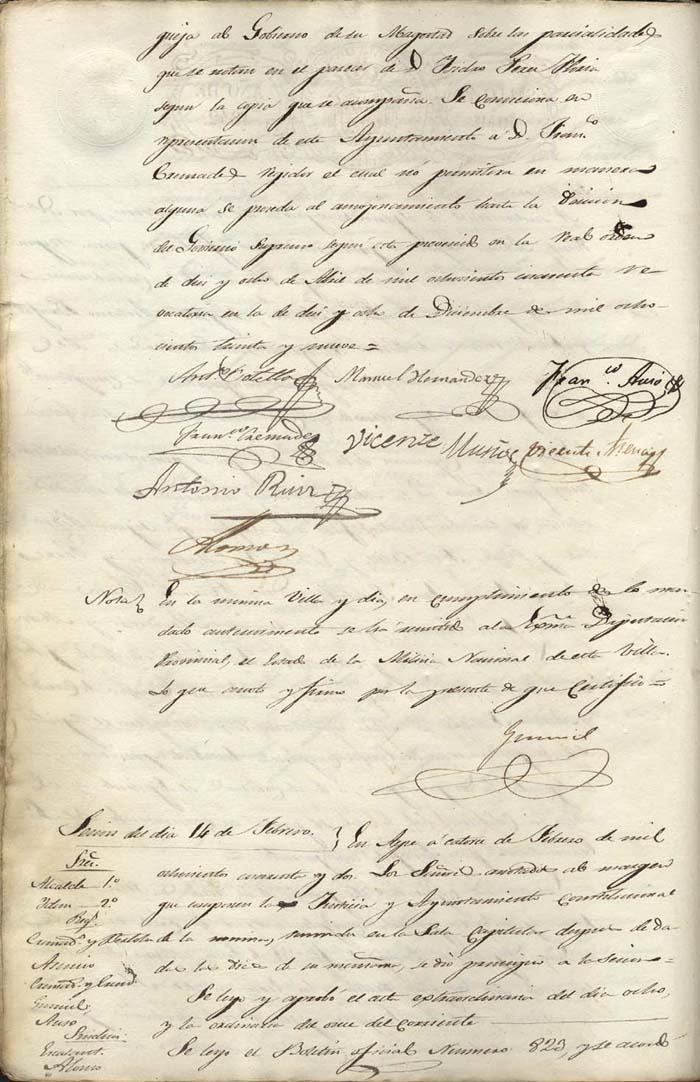 queja al Gobierno de su Magestad sobre las parcialidades
que se notan en el parecer de D. Perez
segun la copia que se acompaña. Se comiciona en
representacion de este Ayuntamiento á D. Franco.
Cremades regidor el cual nó permitira en manera
alguna se proceda al amojonamiento hasta la decicion
del Gobierno Supremo segun esta prevenido en la Real orden
de diez y ocho de Abril de mil ochocientos cuarenta re-
vocatoria en la de diez y ocho de Diciembre de mil ocho-
cientos treinta y nueve=
Anto. Botella Manuel Hernandez Franco. Auso
Franco. Cremades Vicente Muñoz Vicente
Antonio Rico
Alonso
Nota En la misma Villa y dia, en cumplimiento de lo man-
dado anteriormente se há remitido a la Exma. Diputacion
Provincial, el Estado de la Milicia Nacional de esta Villa.
Lo que anoto y firmo por la presente de que Certifico=
Gumiel
Secion del dia 14 de Febrero. En Aspe á catorce de Febrero de mil
Sres.
ochocientos cuarenta y dos. Los Señores anotados al margen
Alcalde 1.º
que componen la Justicia y Ayuntamiento Constitucional
Idem 2.º
Regs.
de la misma, reunidos en la Sala Capitular despues de da-
Cremads. y Botella
das las diez de su mañana, se dió principio a la secion=
Asencio
Cremads. y
Se leyo y aprobó el acta extraordinaria del dia ocho,
Gumiel
y la ordinaria del once del corriente
Auso
Sindico
Se leyo el Boletin oficial Numero 823 y se acordó
Alonso